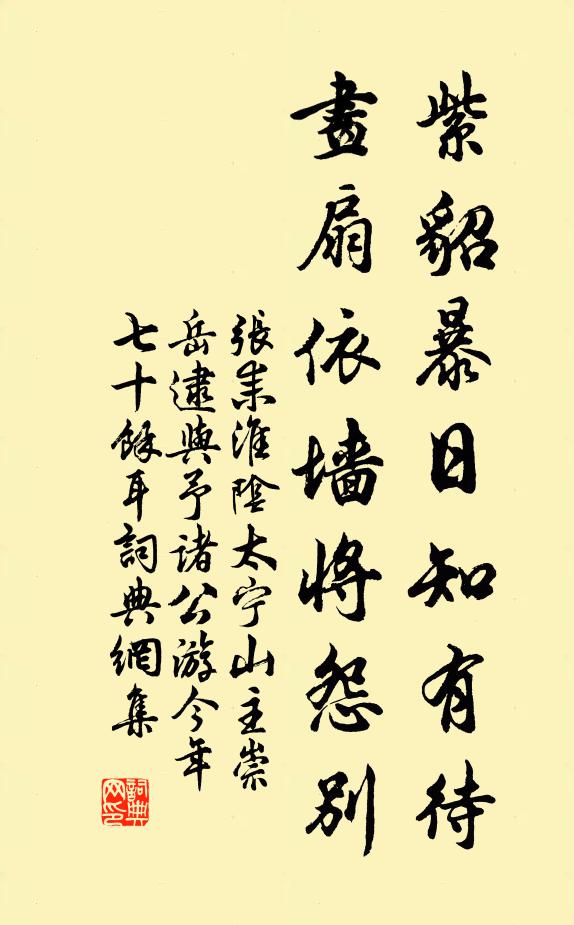 紫貂暴日知有待
畫扇依墙将怨別
張耒淮陰太宁山主崇
岳逮與予诸公游今年
七十餘耳詞典網集
詞典网印